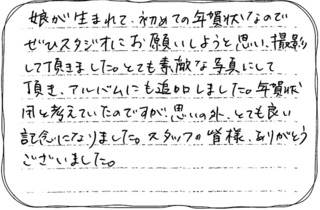 娘が生まれて、初めての年賀状なので
ぜひスタジオにお願いしようと思い、撮影
して頂きました。とても素敵な写真にして
頂き、アルバムにも追加しました。年賀状
用と考えていたのですが、思いの外、とても良い
記念になりました。スタッフの皆様、ありがとう
ございました。